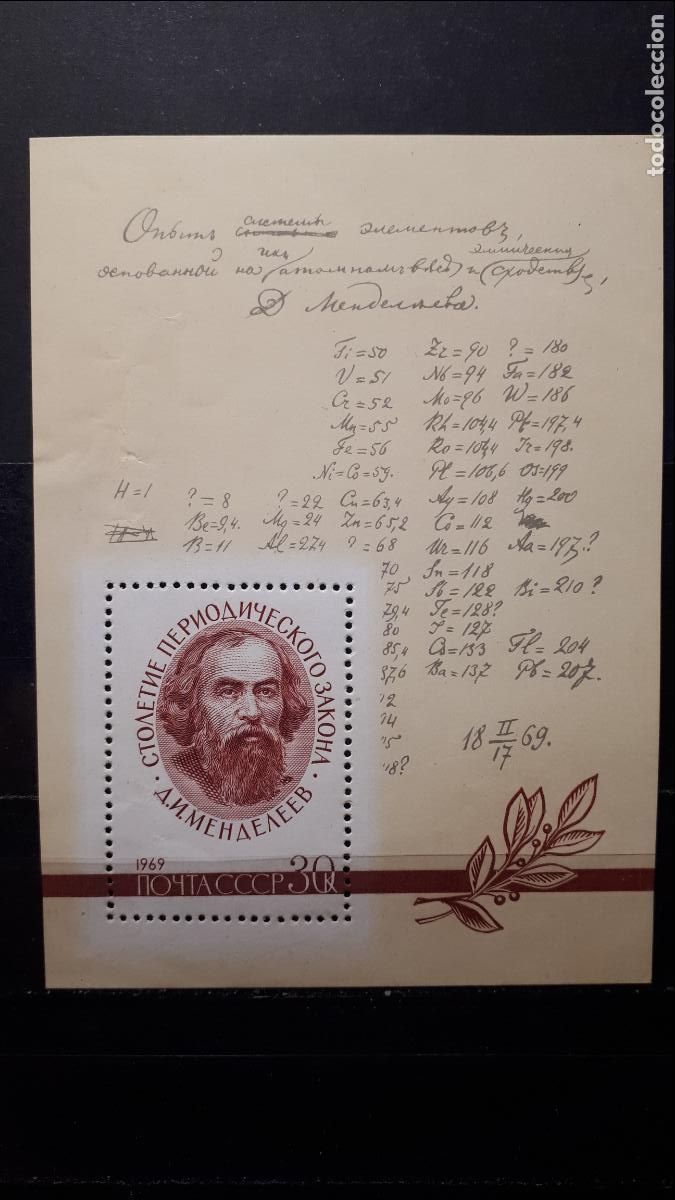 todocoleccion
Опытъ системы элементовъ,
ихъ химическ
основанной на атомномъ весѣ и сходствѣ,
Д Менделѣева.
Ti=50 Zr=90 ?=180
V=51 Nb=94 Ta=182
Cr=52 Mo=96 W=186
Mn=55 Rh=104,4 Pt=197,4
Fe=56 Ro=104,4 Ir=198.
Ni=Co=59. Pl=106,6 Os=199
H=1 ?=8 ?=22 Cu=63,4 Ag=108 Hg=200
Be=9,4. Mg=24 Zn=65,2 Cd=112
B=11 Al=27,4 ?=68 Ur=116 Au=197?
70 Sn=118
75 Sb=122 Bi=210?
79,4 Te=128?
80 J=127
85,4 Cs=133 Tl=204
87,6 Ba=137 Pb=207.
18 II/17 69.
СТОЛЕТИЕ ПЕРИОДИЧЕСКОГО ЗАКОНА
· Д.И.МЕНДЕЛЕЕВ ·
1969
ПОЧТА СССР 30к